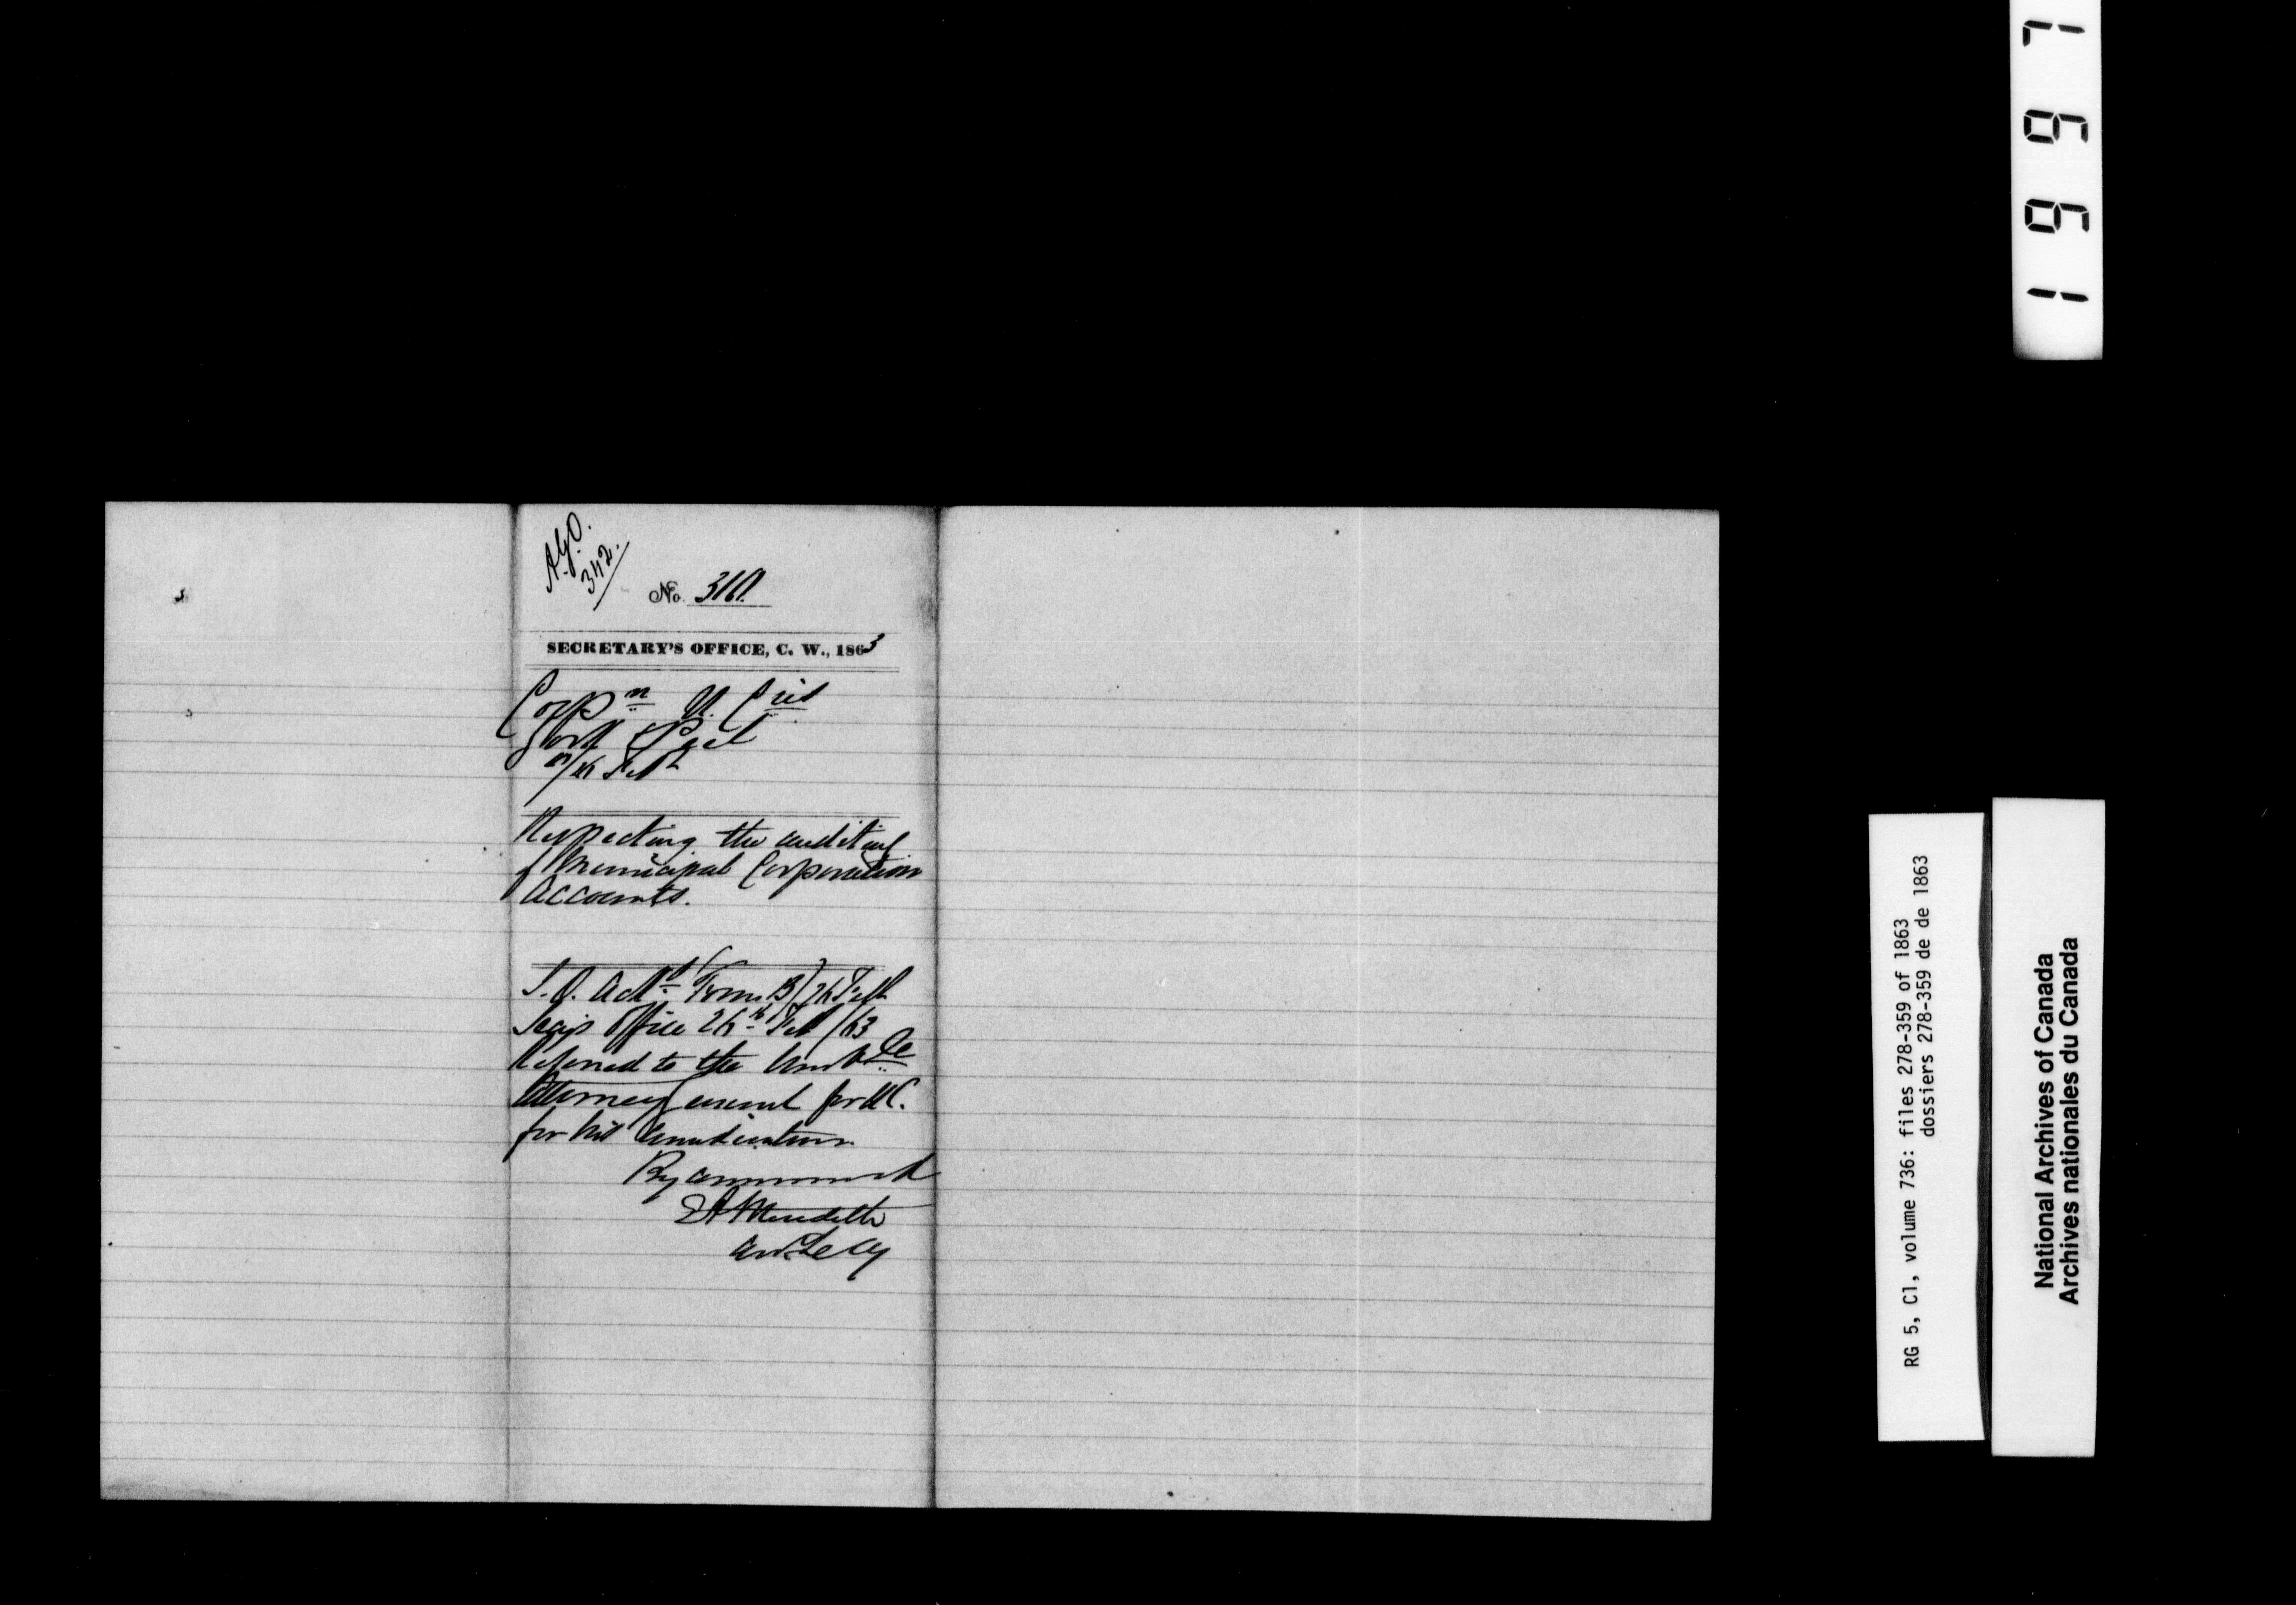 A.G.O.
342.
No. 310.
SECRETARY'S OFFICE, C. W., 1863
Corpn U. Cies
York & Peel
Respecting the auditing
of Municipal Corporation
Accounts.
S.O. Ackd Form B) 26 Feb
Secy's Office 26th Feb /63
Referred to the Honble
Attorney General for U C.
for his Consideration.
By Command
E A Meredith
Asst. Secy
1997
RG 5, C1, volume 736: files 278-359 of 1863
dossiers 278-359 de de 1863
National Archives of Canada
Archives nationales du Canada